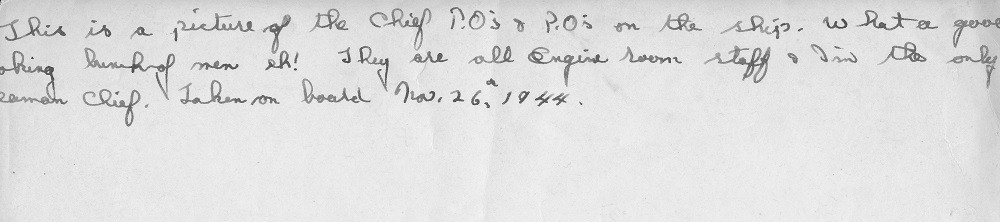 This is a picture of the Chief P.O's & P.O's on the ship. What a good
oking bunch of men eh! They are all Engine room staff & I'm the only
eaman Chief. Taken on board Nov. 26, 1944.